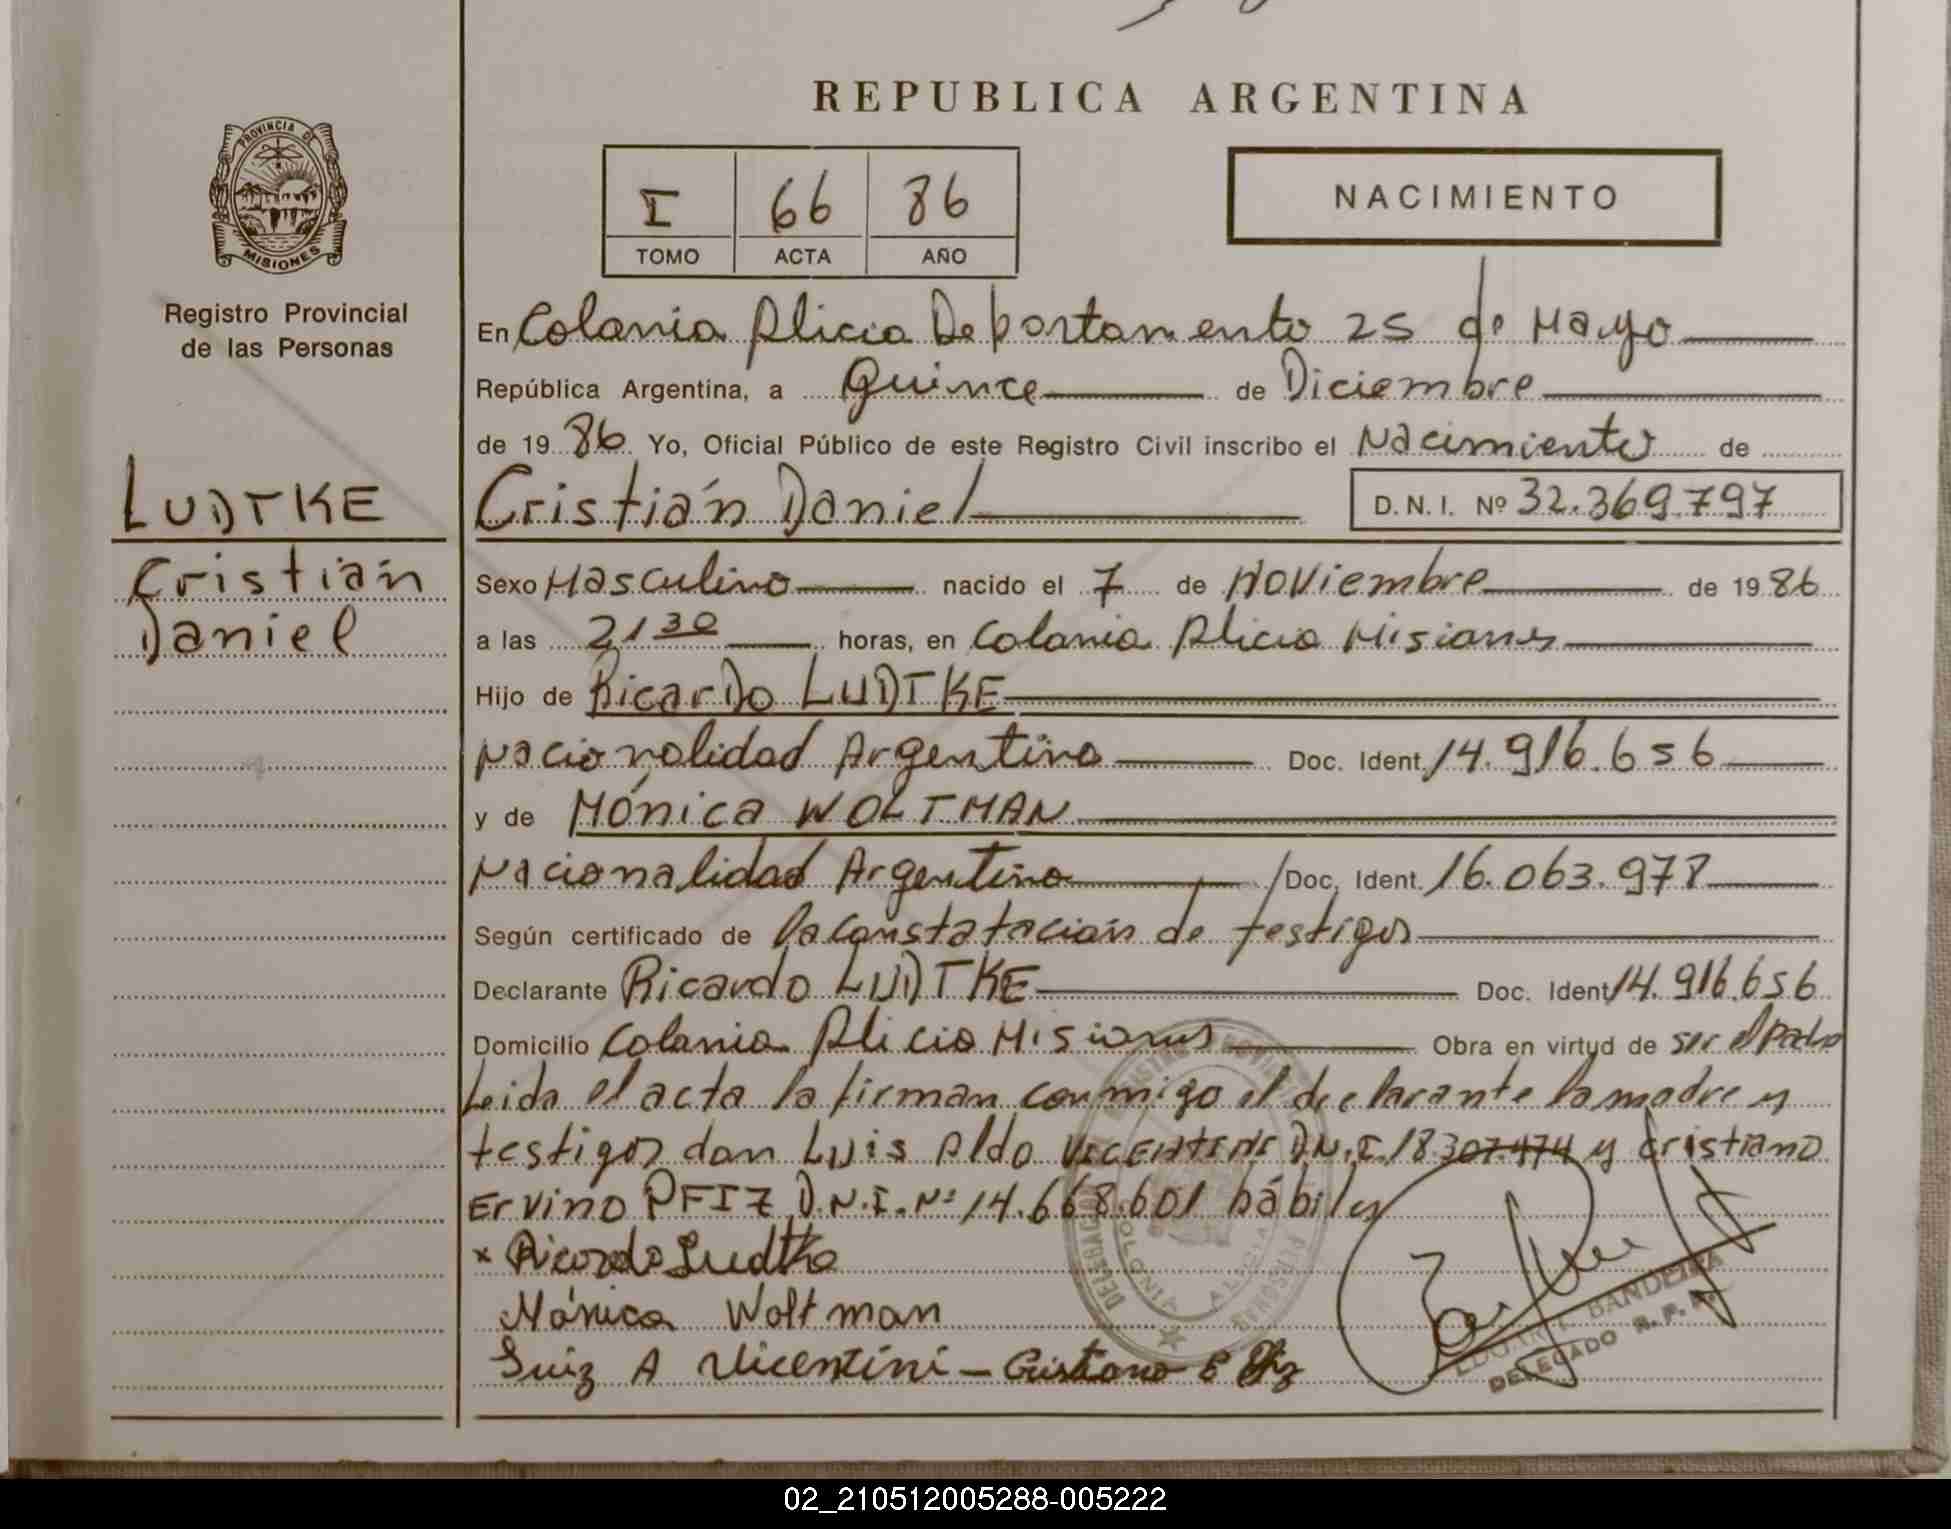 REPUBLICA ARGENTINA
PROVINCIA DE
MISIONES
Registro Provincial
de las Personas
I 66 86
TOMO ACTA AÑO
NACIMIENTO
En Colonia Alicia Departamento 25 de Mayo
República Argentina, a Quince de Diciembre
de 19 86 Yo, Oficial Público de este Registro Civil inscribo el Nacimiento de
LUDTKE
Cristián
Daniel
Cristián Daniel D.N.I. Nº 32.369.797
Sexo Masculino nacido el 7 de Noviembre de 19 86
a las 21 30 horas, en Colonia Alicia Misiones
Hijo de Ricardo LUDTKE
Nacionalidad Argentina Doc. Ident. 14.916.656
y de Mónica WOLTMAN
Nacionalidad Argentina Doc. Ident. 16.063.978
Según certificado de la constatación de testigos
Declarante Ricardo LUDTKE Doc. Ident. 14.916.656
Domicilio Colonia Alicia Misiones Obra en virtud de ser el Padre
Leida el acta la firman conmigo el declarante la madre y
testigos don Luis Aldo VICENTINI D.N.I. 18.307.474 y Cristiano
Ervino PFIZ D.N.I. Nº 14.668.601 hábiles
x Ricardo Ludtke
Mónica Woltman
Luiz A Vicentini - Cristiano E Pfiz
COLONIA ALICIA
BANDEIRA
DELEGADO R.P.P.
02_210512005288-005222